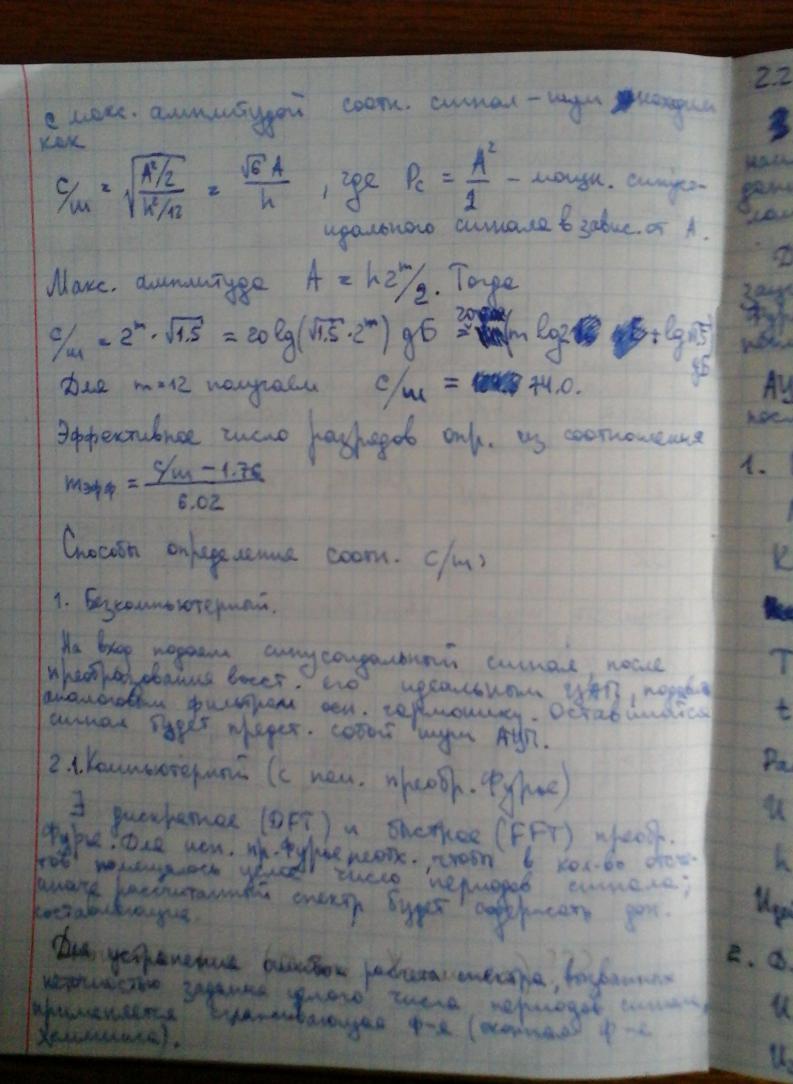 с макс. амплитудой соотн. сигнал-шум находим
как
с/ш = √(A²/2 / h²/12) = √6 A / h , где Pс = A²/2 - мощн. синусо-
идального сигнала в завис. от A.
Макс. амплитуда A = h2^m/2. Тогда
с/ш = 2^m · √1.5 = 20lg(√1.5·2^m) дБ = (m lg2 + lg√1.5)
дБ
Для m=12 получаем с/ш = 74.0.
Эффективное число разрядов опр. из соотношения
mэфф = (с/ш - 1.76) / 6.02
Способы определения соотн. с/ш:
1. Безкомпьютерный.
На вход подаем синусоидальный сигнал, после
преобразования восст. его идеальным ЦАП, подавить
аналоговым фильтром осн. гармонику. Оставшийся
сигнал будет предст. собой шум АЦП.
2.1. Компьютерный (с пом. преобр. Фурье)
∃ дискретное (DFT) и быстрое (FFT) преобр.
Фурье. Для исп. пр. Фурье необх., чтобы в кол-во отсче-
тов помещалось целое число периодов сигнала;
иначе рассчитанный спектр будет содержать доп.
составляющие.
Для устранения ошибок расчета спектра, вызванных
неточностью задания целого числа периодов сигнала,
применяется сглаживающая ф-я (оконная ф-я
Хемминга).
2.2
1.
А
К
T
t
U
h
2.
U